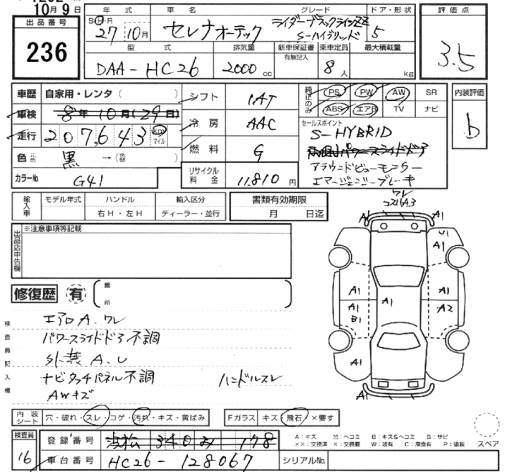 10月9日
出品番号
236
年式 車名 グレード ドア・形状 評価点
S・H・R 27年10月 セレナ オーテック ライダーブラックラインZZ S-ハイブリッド 5 3.5
型式 排気量 新車保証書 有無記入 乗車定員 最大積載量
DAA-HC26 2000cc 8人 kg
車歴 自家用・レンタ シフト IAT
車検 8年10月(29)日 冷房 AAC
走行 207,643 km マイル 燃料 G
色 黒 → ( ) リサイクル料金 11,810円
カラーNo. G41
PS PW AW SR
ABS エアB TV ナビ
内装評価
b
セールスポイント
S-HYBRID
パワースライドドア
アラウンドビューモニター
エマージェンシーブレーキ
輸入車 モデル年式 ハンドル 輸入区分 書類有効期限
右H・左H ディーラー・並行 月 日迄
※注意事項等記載
出品店申告欄
修復歴 有 箇所
検査員記入欄
エアロA、ワレ
パワースライドドア不調
外装A、U
ナビタッチパネル不調 ハンドルスレ
AWキズ
ワレ
A1 A1
U1 A1
A1 A1
A2 A1 A2
B1 A1
A1
内装シート 穴・破れ・スレ・コゲ・汚れ・キズ・黄ばみ Fガラス キズ 飛石 ×要す
A:キズ U:ヘコミ B:キズ&ヘコミ S:サビ
スペア
検査員 16
登録番号 340 178
車台番号 HC26-128067 シリアルNo.